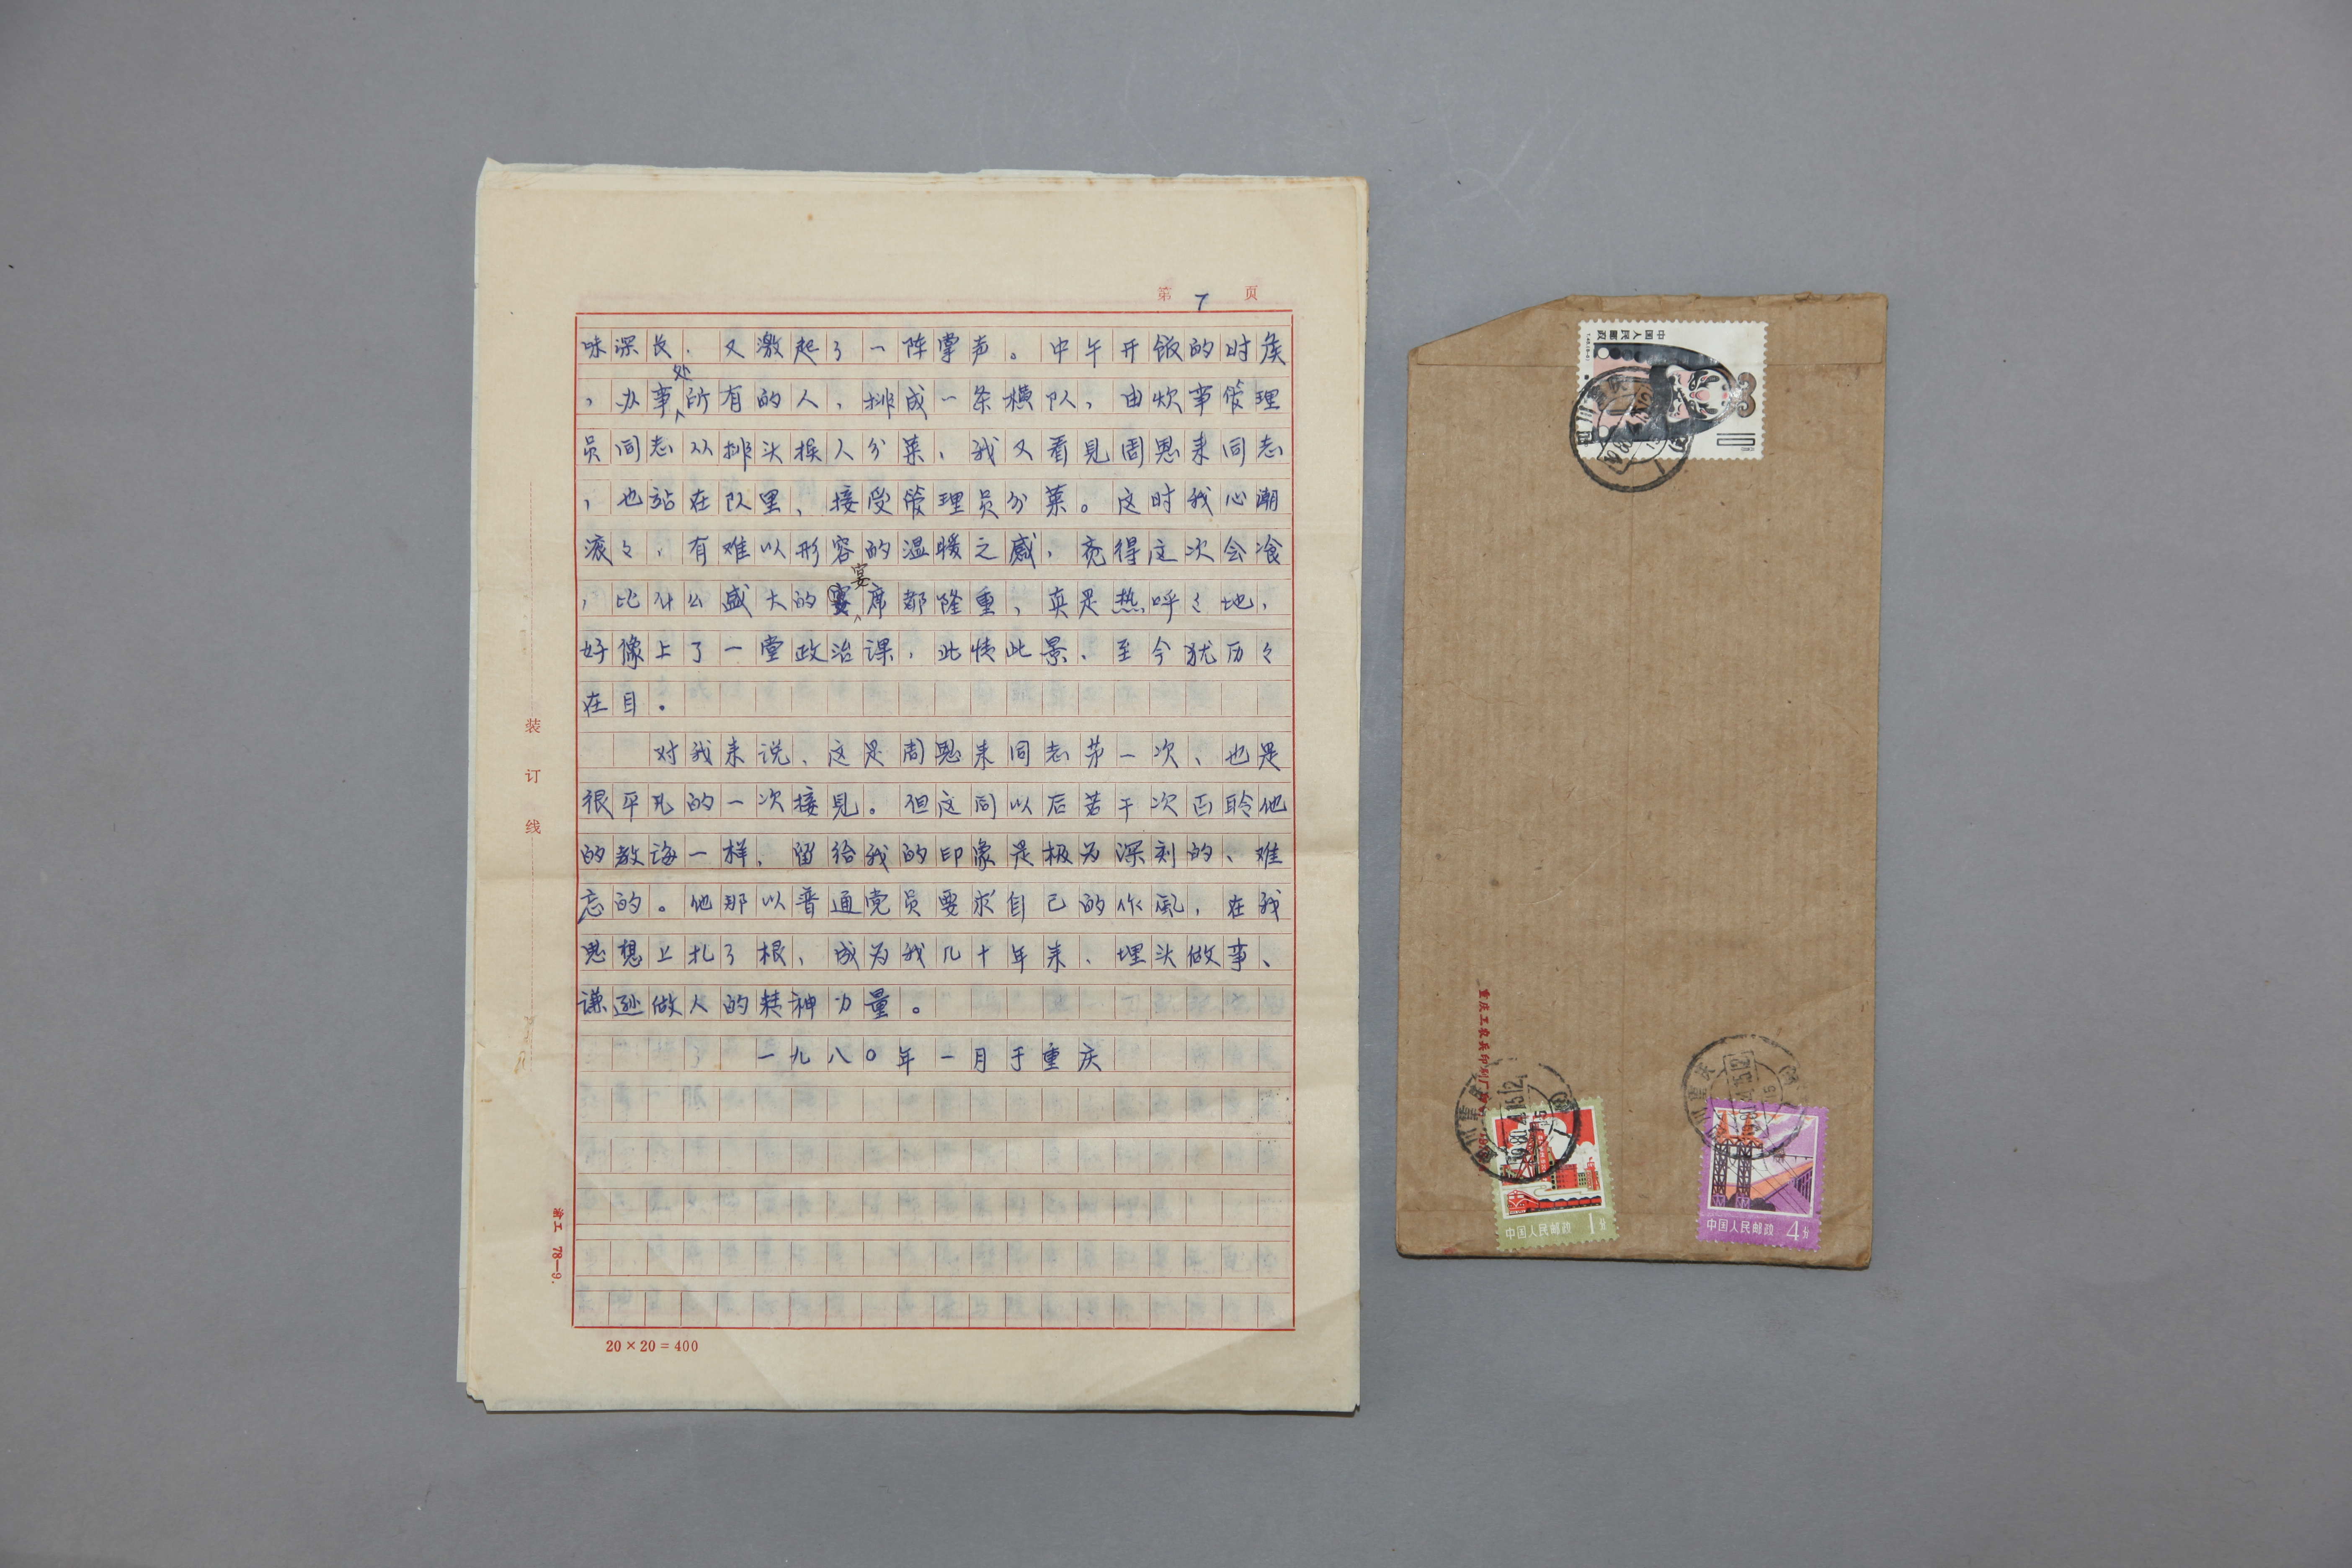 第 7 页
味深长，又激起了一阵掌声。中午开饭的时侯
，办事处所有的人，排成一条横队，由炊事管理
员同志从排头挨人分菜，我又看见周恩来同志
，也站在队里，接受管理员分菜。这时我心潮
滚々，有难以形容的温暖之感，竞得这次会飡
，比什么盛大的宴席都隆重，真是热呼々地，
好像上了一堂政治课，此情此景，至今犹历々
在目。
对我来说，这是周恩来同志第一次、也是
很平凡的一次接见。但这同以后若干次面聆他
的教诲一样，留给我的印象是极为深刻的、难
忘的。他那以普通党员要求自己的作风，在我
思想上扎了根，成为我几十年来、埋头做事、
谦逊做人的精神力量。
一九八〇年一月于重庆
装订线
渝工 78—9.
20×20=400
中国人民邮政
10
四川重庆
重庆工农兵印制厂
四川重庆
1980.4.15.12
中国人民邮政 1分
川重庆
15.12
中国人民邮政 4分